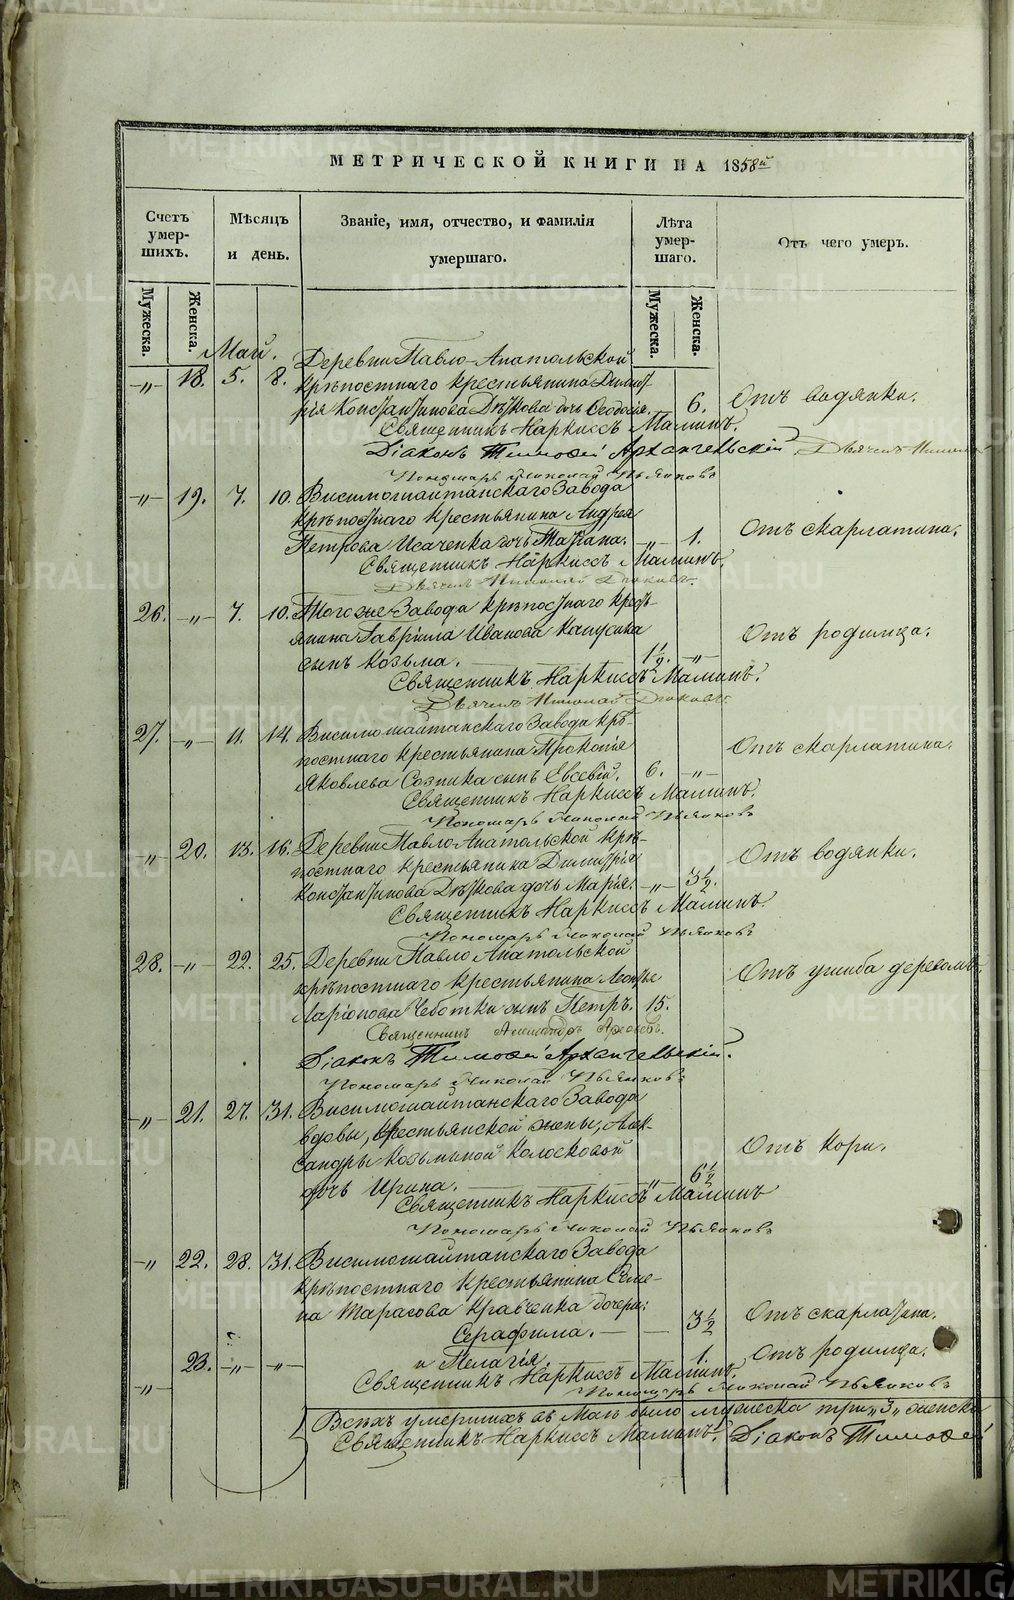 МЕТРИЧЕСКОЙ КНИГИ НА 1858й
Счетъ умер- шихъ.
Мѣсяцъ и день.
Званіе, имя, отчество, и фамилія умершаго.
Лѣта умер- шаго.
Отъ чего умеръ.
Мужеска. Женска. Мужеска. Женска.
Май.
Деревни Павло-Анатольской
—„— 18. 5. 8. крѣпостнаго крестьянина Димит-
рія Константинова Дѣткова дочь Ѳеодосія. 6. Отъ водянки.
Священникъ Наркиссъ Маминъ.
Діаконъ Тимоѳей Архангельскій
Пономарь Николай Пьянковъ
—„— 19. 7. 10. Висимошайтанскаго Завода
крѣпостнаго крестьянина Андрея
Петрова Исаченка дочь Татіана. —„— 1. Отъ скарлатина.
Священникъ Наркиссъ Маминъ.
Дьячекъ Николай
26. —„— 7. 10. Тогоже Завода крѣпостнаго кресть-
янина Гавріила Иванова Капусика
сынъ Козьма. 1½. —„— Отъ родимца.
Священникъ Наркиссъ Маминъ.
Дьячекъ Николай
27. —„— 11. 14. Висимошайтанскаго Завода крѣ-
постнаго крестьянина Прокопія
Яковлева Созника сынъ Евсевій. 6. —„— Отъ скарлатина.
Священникъ Наркиссъ Маминъ.
Пономарь Николай Пьянковъ
—„— 20. 13. 16. Деревни Павло Анатольской крѣ-
постнаго крестьянина Димитрія
Константинова Дѣткова дочь Марія. —„— 3½. Отъ водянки.
Священникъ Наркиссъ Маминъ.
Пономарь Николай Пьянковъ
28. —„— 22. 25. Деревни Павло Анатольской
крѣпостнаго крестьянина Леонтія
Ларіонова Чеботка сынъ Петръ. 15. Отъ ушиба деревомъ.
Священникъ Александръ
Діаконъ Тимоѳей Архангельскій.
Пономарь Николай Пьянковъ
—„— 21. 27. 31. Висимошайтанскаго Завода
вдовы, крестьянской жены, Алек-
сандры Козьминой Колосковой
дочь Ирина. —„— 6½ Отъ кори.
Священникъ Наркиссъ Маминъ
Пономарь Николай Пьянковъ
—„— 22. 28. 31. Висимошайтанскаго Завода
крѣпостнаго крестьянина Семе-
на Тарасова Кравченка дочери:
Серафима. — — 3½ Отъ скарлатина.
—„— 23. —„— —„— и Пелагія. 1. Отъ родимца.
Священникъ Наркиссъ Маминъ.
Пономарь Николай Пьянковъ
Всѣхъ умершихъ въ Маѣ было мужеска три „3„ женска
Священникъ Наркиссъ Маминъ. Діаконъ Тимоѳей
METRIKI.GASO-URAL.RU